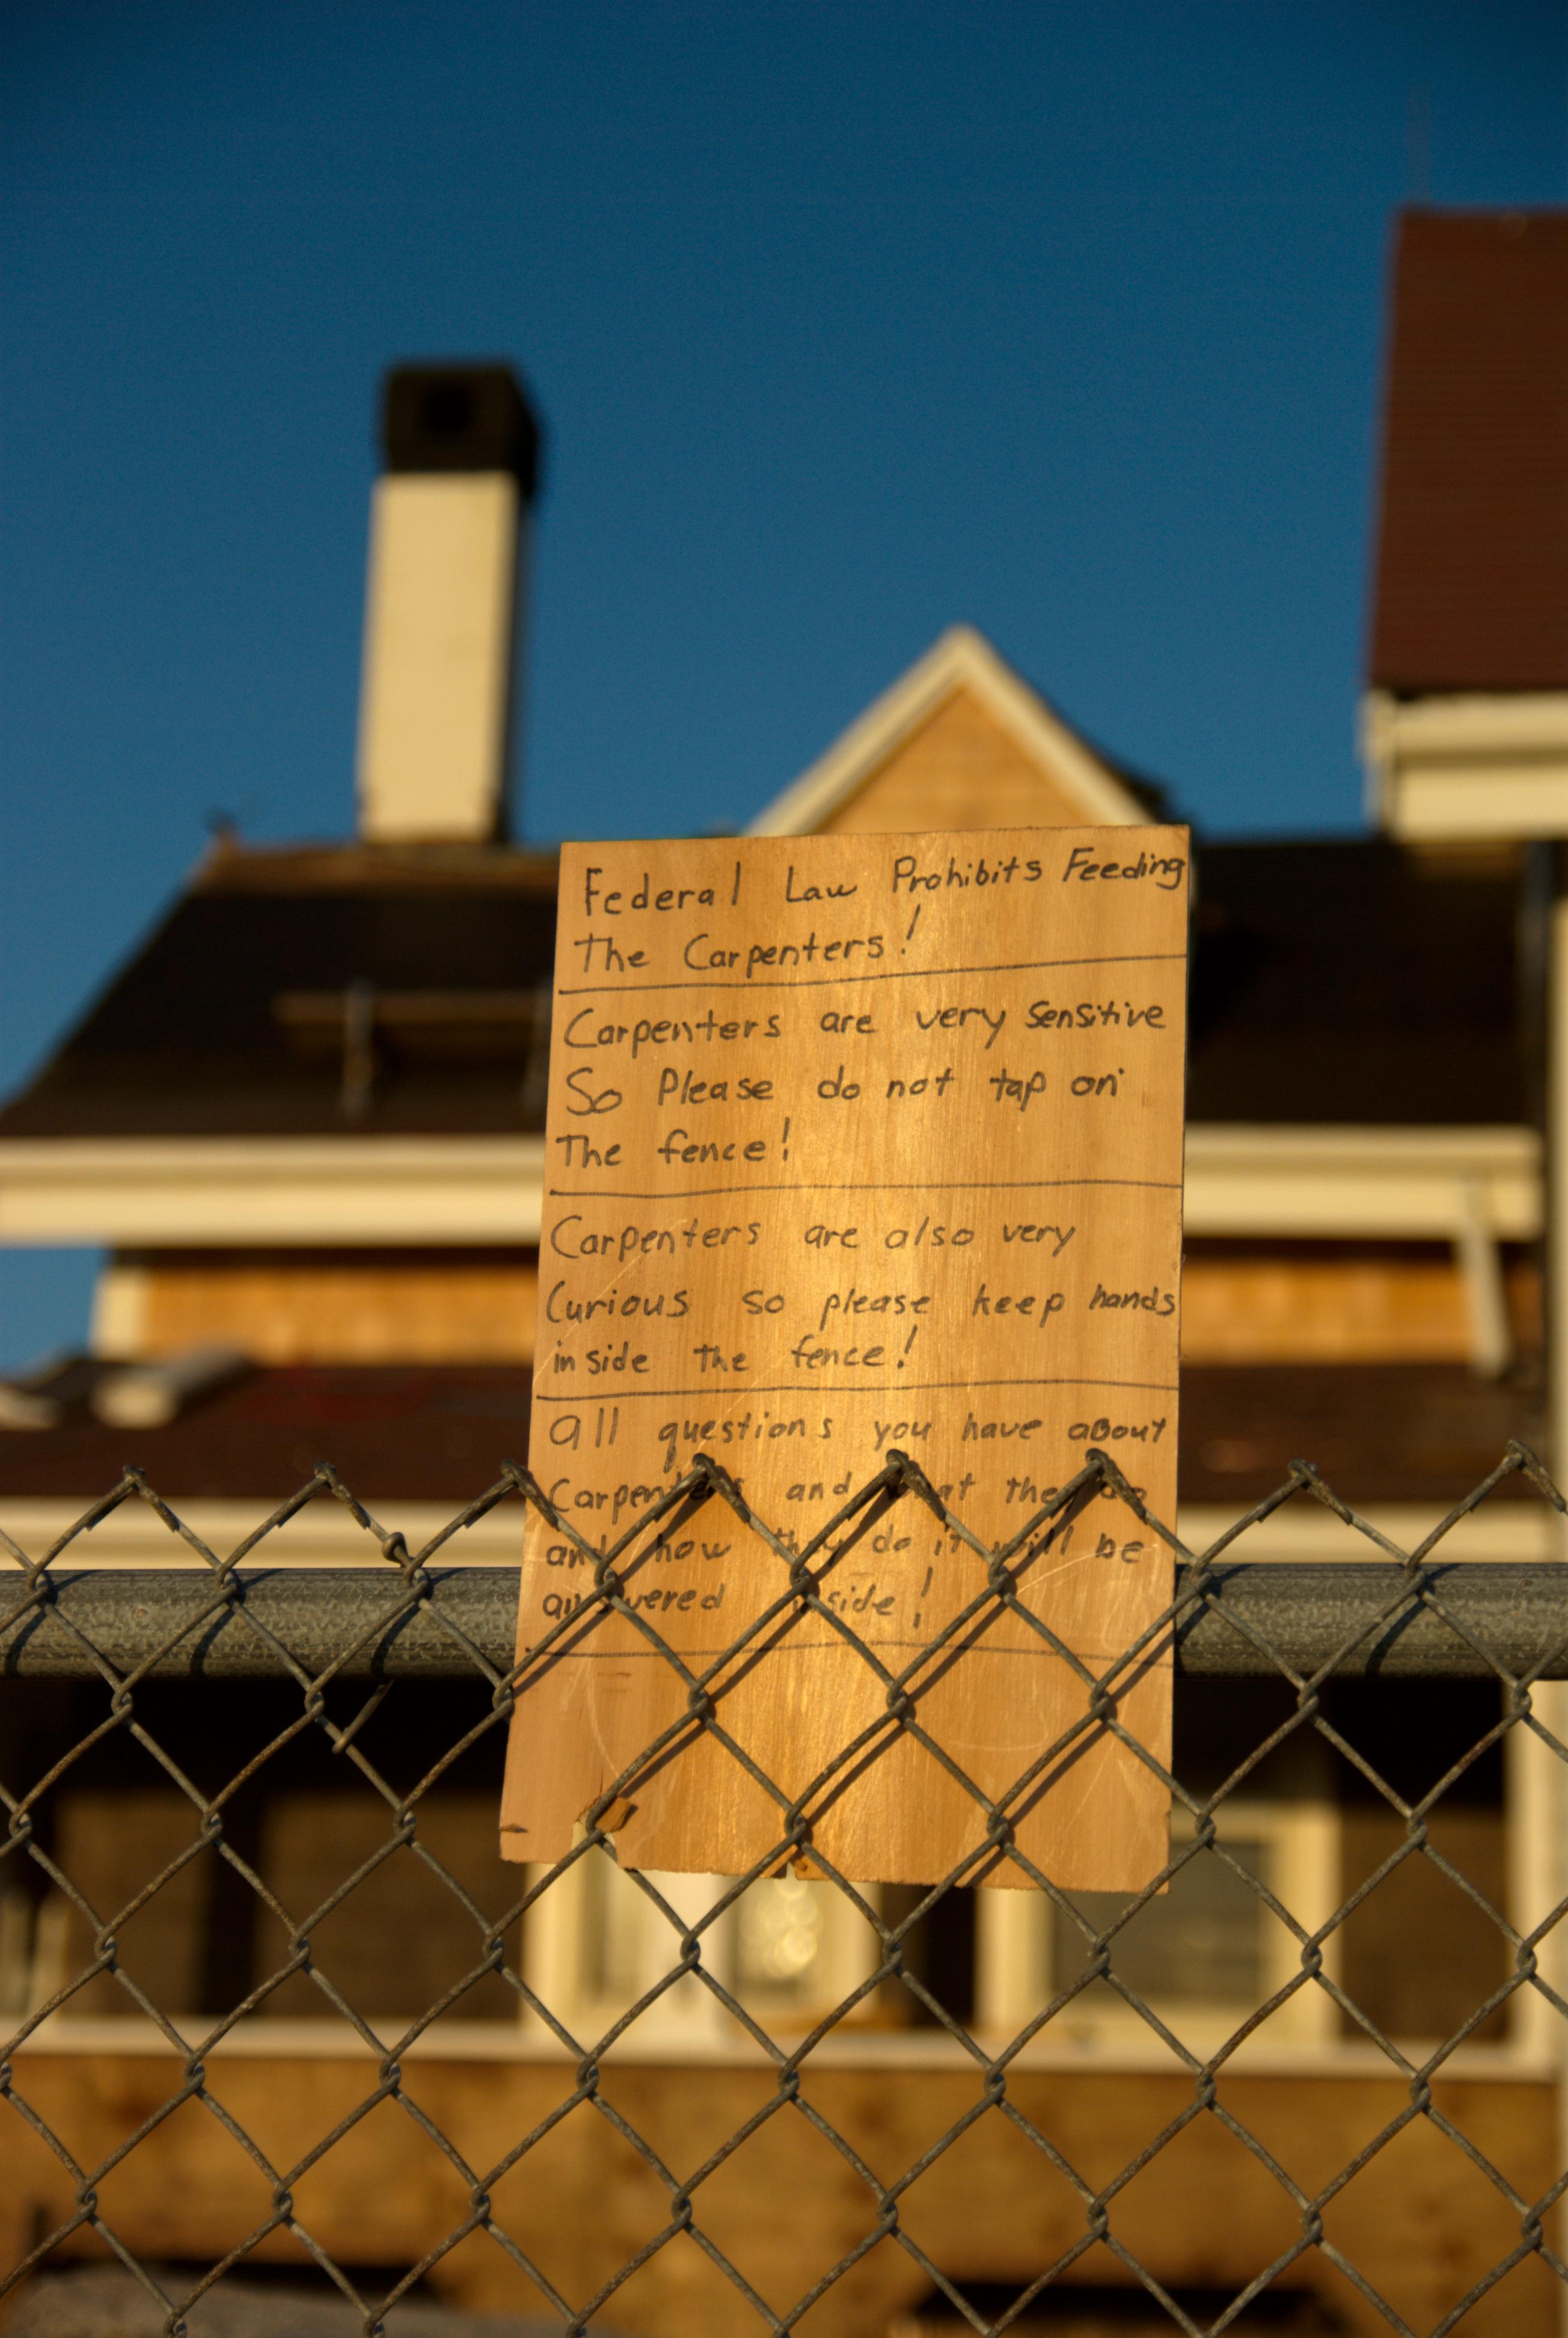 Federal Law Prohibits Feeding
The Carpenters!
Carpenters are very Sensitive
So Please do not tap on
The fence!
Carpenters are also very
Curious so please keep hands
inside the fence!
all questions you have about
Carpenters and what they do
and how they do it will be
answered inside!